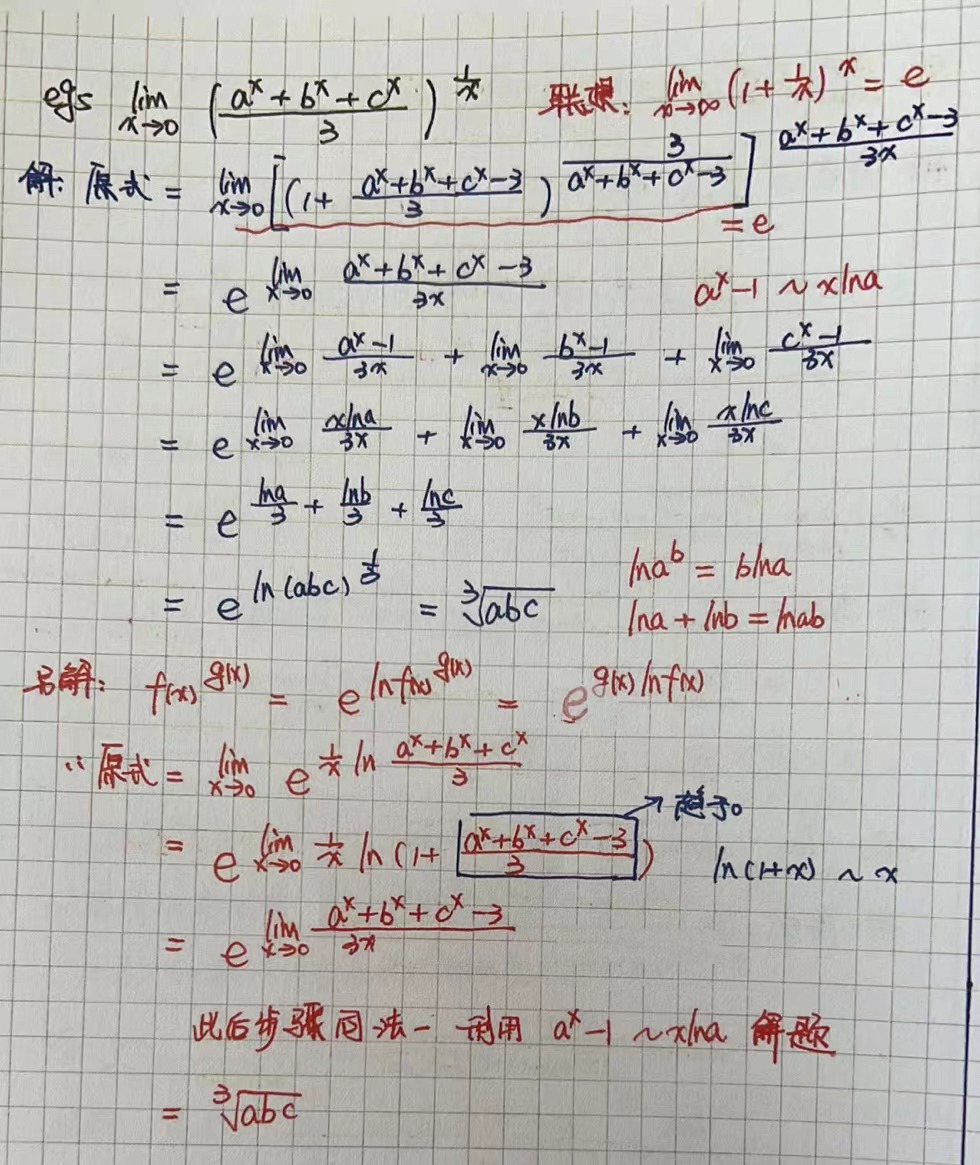 eg5 lim x→0 ((a^x+b^x+c^x)/3)^(1/x) 联想: lim x→∞ (1+1/x)^x = e
解: 原式 = lim x→0 [(1+(a^x+b^x+c^x-3)/3)^(3/(a^x+b^x+c^x-3))]^((a^x+b^x+c^x-3)/3x)
= e
= e^(lim x→0 (a^x+b^x+c^x-3)/3x) a^x-1 ~ xlna
= e^(lim x→0 (a^x-1)/3x + lim x→0 (b^x-1)/3x + lim x→0 (c^x-1)/3x)
= e^(lim x→0 xlna/3x + lim x→0 xlnb/3x + lim x→0 xlnc/3x)
= e^(lna/3 + lnb/3 + lnc/3)
lna^b = blna
= e^(ln(abc)^(1/3)) = ∛abc
lna + lnb = lnab
另解: f(x)^g(x) = e^(lnf(x)^g(x)) = e^(g(x)lnf(x))
∴原式 = lim x→0 e^(1/x ln (a^x+b^x+c^x)/3)
→趋于0
= e^(lim x→0 1/x ln(1+(a^x+b^x+c^x-3)/3)) ln(1+x) ~ x
= e^(lim x→0 (a^x+b^x+c^x-3)/3x)
此后步骤同法一 利用 a^x-1 ~xlna 解题
= ∛abc